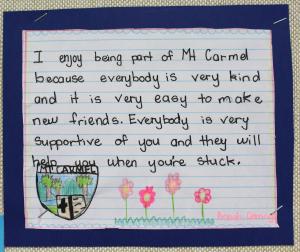 I enjoy being part of Mt Carmel
because everybody is very kind
and it is very easy to make
new friends. Everybody is very
supportive of you and they will
help you when you're stuck.
MT CARMEL